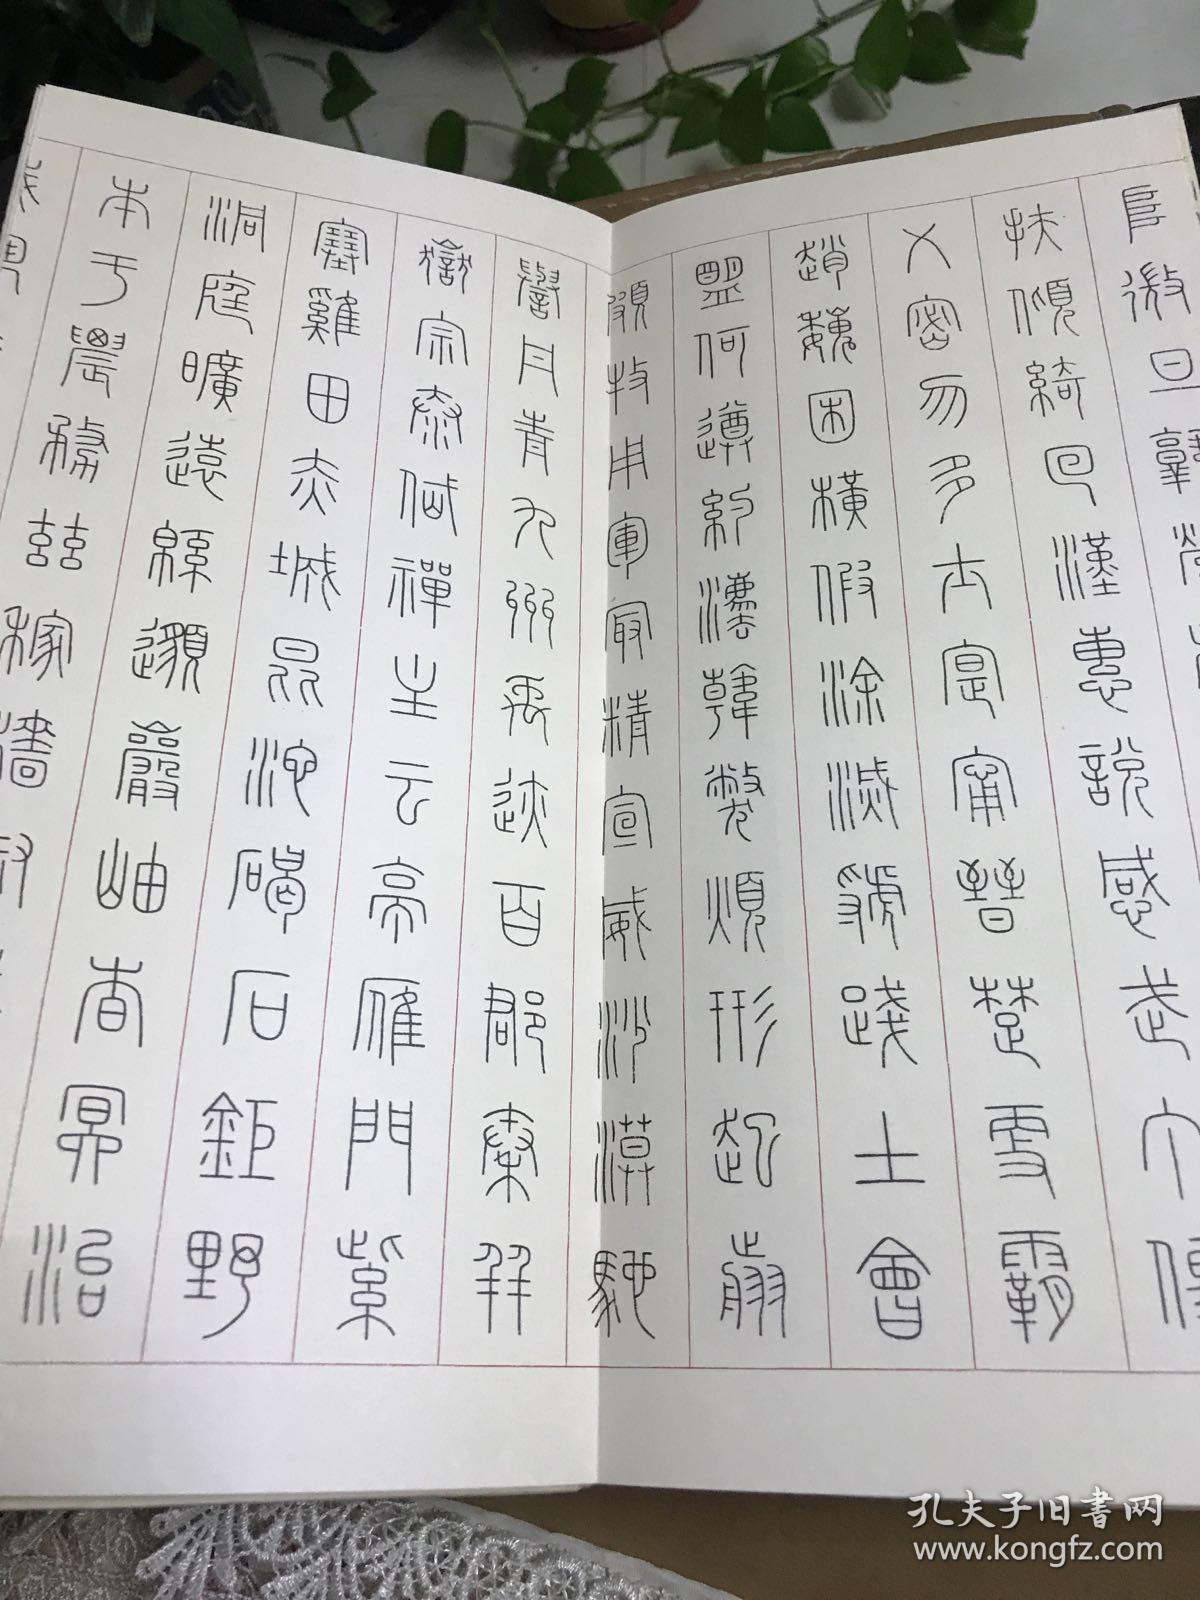 阜微旦孰營
扶傾綺回漢惠說感武丁俊
乂密勿多士寔甯晉楚更霸
趙魏困橫假涂滅虢踐土會
盟何遵約灋韓弊煩形起翦
頗牧用軍最精宣威沙漠馳
譽丹青九州禹迹百郡秦并
嶽宗泰岱禪主云亭雁門紫
塞雞田赤城昆池碣石鉅野
洞庭曠遠緜邈巖岫杳冥治
本于農務茲稼穡俶
孔夫子旧书网
www.kongfz.com